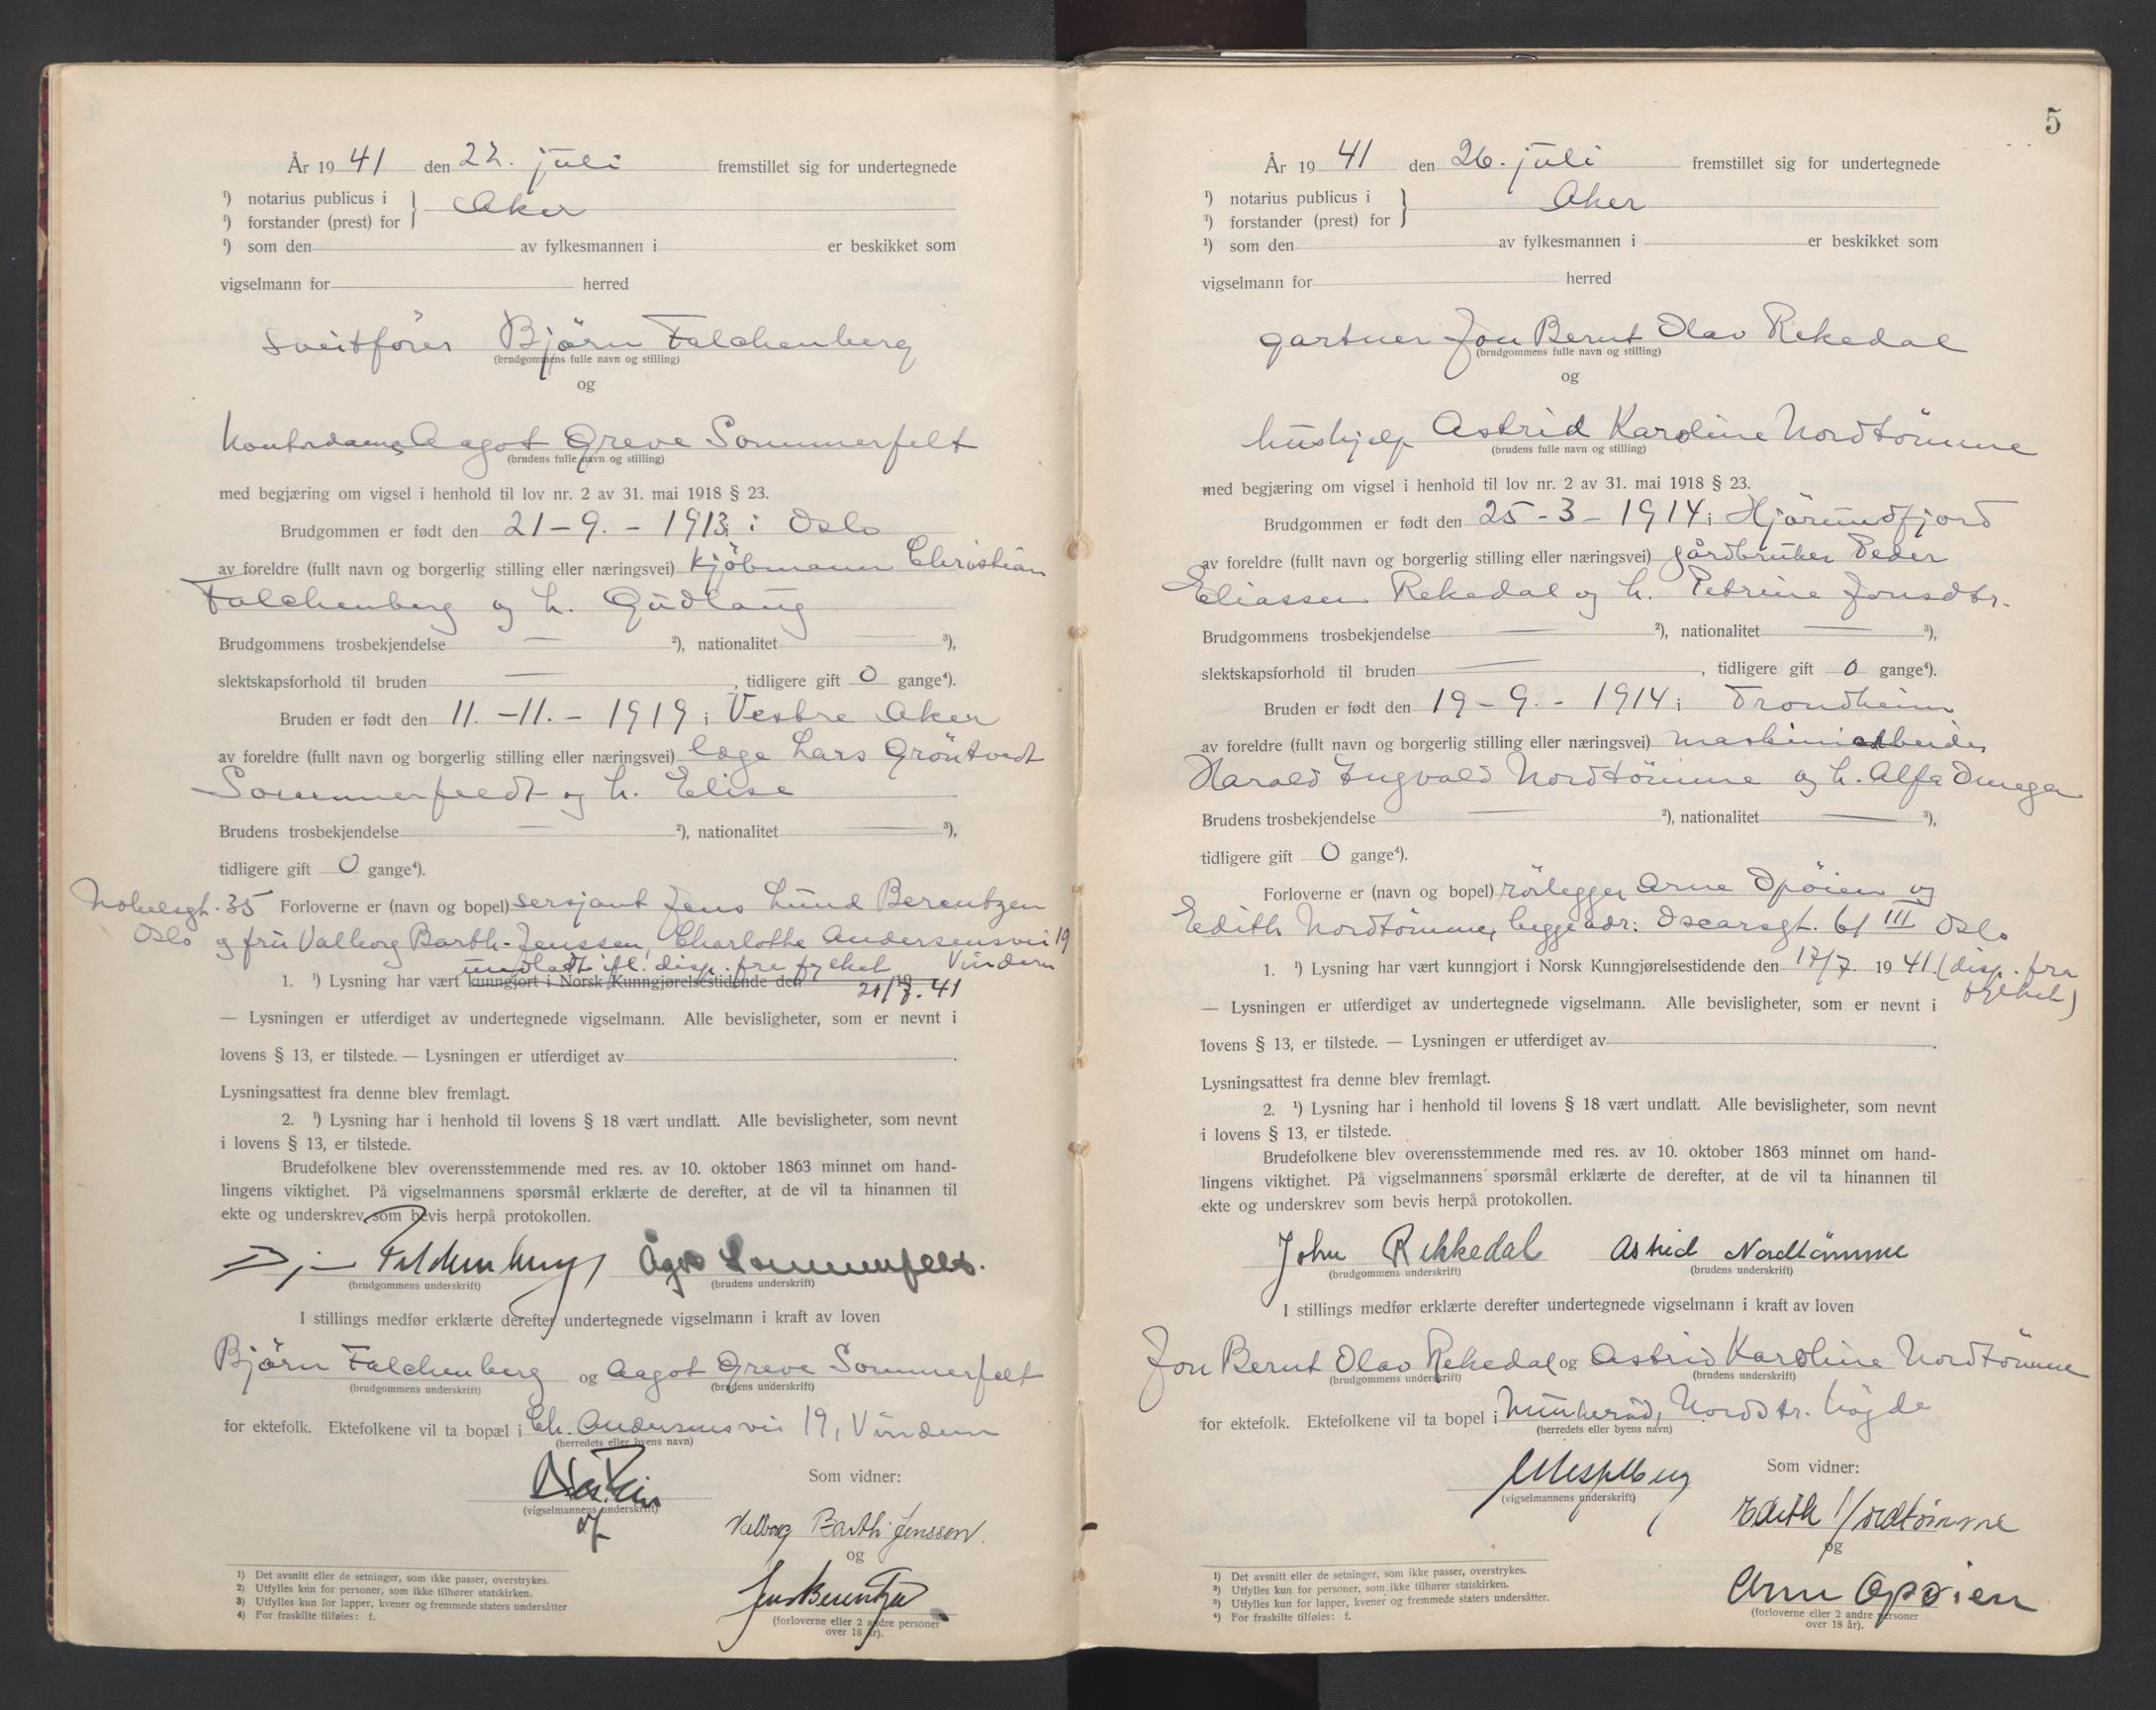 År 19 41 den 22. juli fremstillet sig for undertegnede
¹) notarius publicus i } Aker
¹) forstander (prest) for
¹) som den av fylkesmannen i er beskikket som
vigselmann for herred
sveitfører Björn Falchenberg
(brudgommens fulle navn og stilling)
og
Kontordame Aagot Greve Sommerfelt
(brudens fulle navn og stilling)
med begjæring om vigsel i henhold til lov nr. 2 av 31. mai 1918 § 23.
Brudgommen er født den 21-9.-1913 i Oslo
av foreldre (fullt navn og borgerlig stilling eller næringsvei) kjöbmann Christian
Falchenberg og h. Gudlaug
Brudgommens trosbekjendelse — ²), nationalitet — ³),
slektskapsforhold til bruden — , tidligere gift 0 gange⁴).
Bruden er født den 11.-11.-1919 i Vestre Aker
av foreldre (fullt navn og borgerlig stilling eller næringsvei) læge Lars Gröntvedt
Sommerfeldt og h. Elise
Brudens trosbekjendelse — ²), nationalitet — ³),
tidligere gift 0 gange⁴).
Nobelsgt. 35 Forloverne er (navn og bopel) sersjant Jens Lund Berentzen
Oslo og fru Valborg Barth-Jenssen, Charlotte Andersensvei 19
undladt ifl. disp. fra fylket Vindern
1. ¹) Lysning har vært kunngjort i Norsk Kunngjørelsestidende den 19
21/7.41
— Lysningen er utferdiget av undertegnede vigselmann. Alle bevisligheter, som er nevnt i
lovens § 13, er tilstede. — Lysningen er utferdiget av .
Lysningsattest fra denne blev fremlagt.
2. ¹) Lysning har i henhold til lovens § 18 vært undlatt. Alle bevisligheter, som nevnt
i lovens § 13, er tilstede.
Brudefolkene blev overensstemmende med res. av 10. oktober 1863 minnet om hand-
lingens viktighet. På vigselmannens spørsmål erklærte de derefter, at de vil ta hinannen til
ekte og underskrev som bevis herpå protokollen.
Falchenberg Sommerfelt.
(brudgommens underskrift) (brudens underskrift)
I stillings medfør erklærte derefter undertegnede vigselmann i kraft av loven
Björn Falchenberg og Aagot Greve Sommerfelt
(brudgommens underskrift) (brudens underskrift)
for ektefolk. Ektefolkene vil ta bopæl i Ch. Andersensvei 19, Vindern
(herredets eller byens navn)
Som vidner:
(vigselmannens underskrift)
Valborg Barth-Jenssen.
og
Jens Berentzen
(forloverne eller 2 andre personer
over 18 år).
1) Det avsnitt eller de setninger, som ikke passer, overstrykes.
2) Utfylles kun for personer, som ikke tilhører statskirken.
3) Utfylles kun for lapper, kvener og fremmede staters undersåtter
4) For fraskilte tilføies: f.
5
År 19 41 den 26. juli fremstillet sig for undertegnede
¹) notarius publicus i } Aker
¹) forstander (prest) for
¹) som den av fylkesmannen i er beskikket som
vigselmann for herred
gartner Jon Bernt Olav Rekedal
(brudgommens fulle navn og stilling)
og
hushjelp Astrid Karoline Nordtömme
(brudens fulle navn og stilling)
med begjæring om vigsel i henhold til lov nr. 2 av 31. mai 1918 § 23.
Brudgommen er født den 25-3-1914 i Hjörundfjord
av foreldre (fullt navn og borgerlig stilling eller næringsvei) gårdbruker Peder
Eliassen Rekedal og h. Petrine Jonsdtr.
Brudgommens trosbekjendelse — ²), nationalitet — ³),
slektskapsforhold til bruden — , tidligere gift 0 gange⁴).
Bruden er født den 19-9.-1914 i Trondheim
av foreldre (fullt navn og borgerlig stilling eller næringsvei) maskinarbeider
Harald Ingvald Nordtömme og h. Alfa Omega
Brudens trosbekjendelse — ²), nationalitet — ³),
tidligere gift 0 gange⁴).
Forloverne er (navn og bopel) rörlegger Arne Opöien og
Edith Nordtömme, begge adr: Oscarsgt. 61 III Oslo
1. ¹) Lysning har vært kunngjort i Norsk Kunngjørelsestidende den 17/7. 19 41 (disp. fra
fylket)
— Lysningen er utferdiget av undertegnede vigselmann. Alle bevisligheter, som er nevnt i
lovens § 13, er tilstede. — Lysningen er utferdiget av .
Lysningsattest fra denne blev fremlagt.
2. ¹) Lysning har i henhold til lovens § 18 vært undlatt. Alle bevisligheter, som nevnt
i lovens § 13, er tilstede.
Brudefolkene blev overensstemmende med res. av 10. oktober 1863 minnet om hand-
lingens viktighet. På vigselmannens spørsmål erklærte de derefter, at de vil ta hinannen til
ekte og underskrev som bevis herpå protokollen.
John Rekkedal Astrid Nordtömme
(brudgommens underskrift) (brudens underskrift)
I stillings medfør erklærte derefter undertegnede vigselmann i kraft av loven
Jon Bernt Olav Rekedal og Astrid Karoline Nordtömme
(brudgommens underskrift) (brudens underskrift)
for ektefolk. Ektefolkene vil ta bopel i Munkerud, Nordstr. högde
(herredets eller byens navn)
Som vidner:
(vigselmannens underskrift)
Edith Nordtømme
og
Arne Opøien
(forloverne eller 2 andre personer
over 18 år).
¹) Det avsnitt eller de setninger, som ikke passer, overstrykes.
²) Utfylles kun for personer, som ikke tilhører statskirken.
³) Utfylles kun for lapper, kvener og fremmede staters undersåtter.
⁴) For fraskilte tilføies: f.